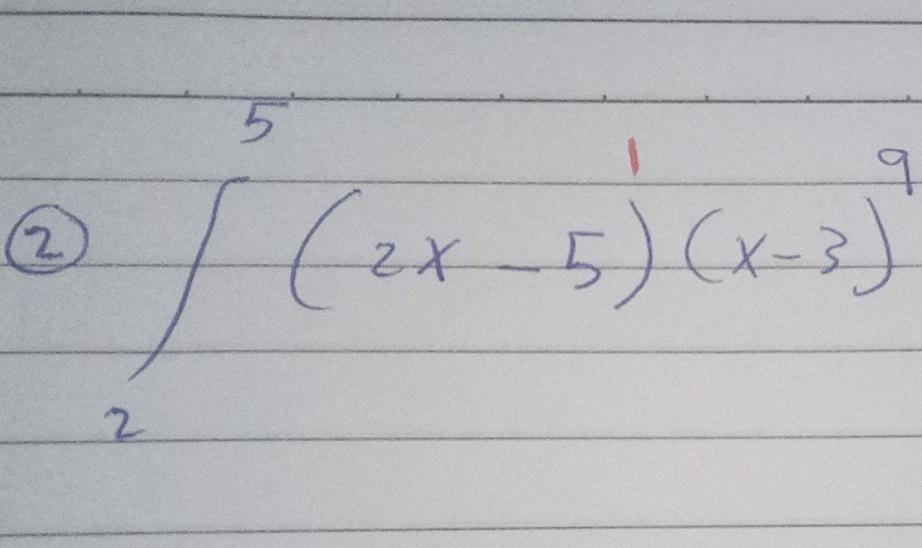 ② ∫₂⁵ (2x - 5)¹ (x - 3)⁹